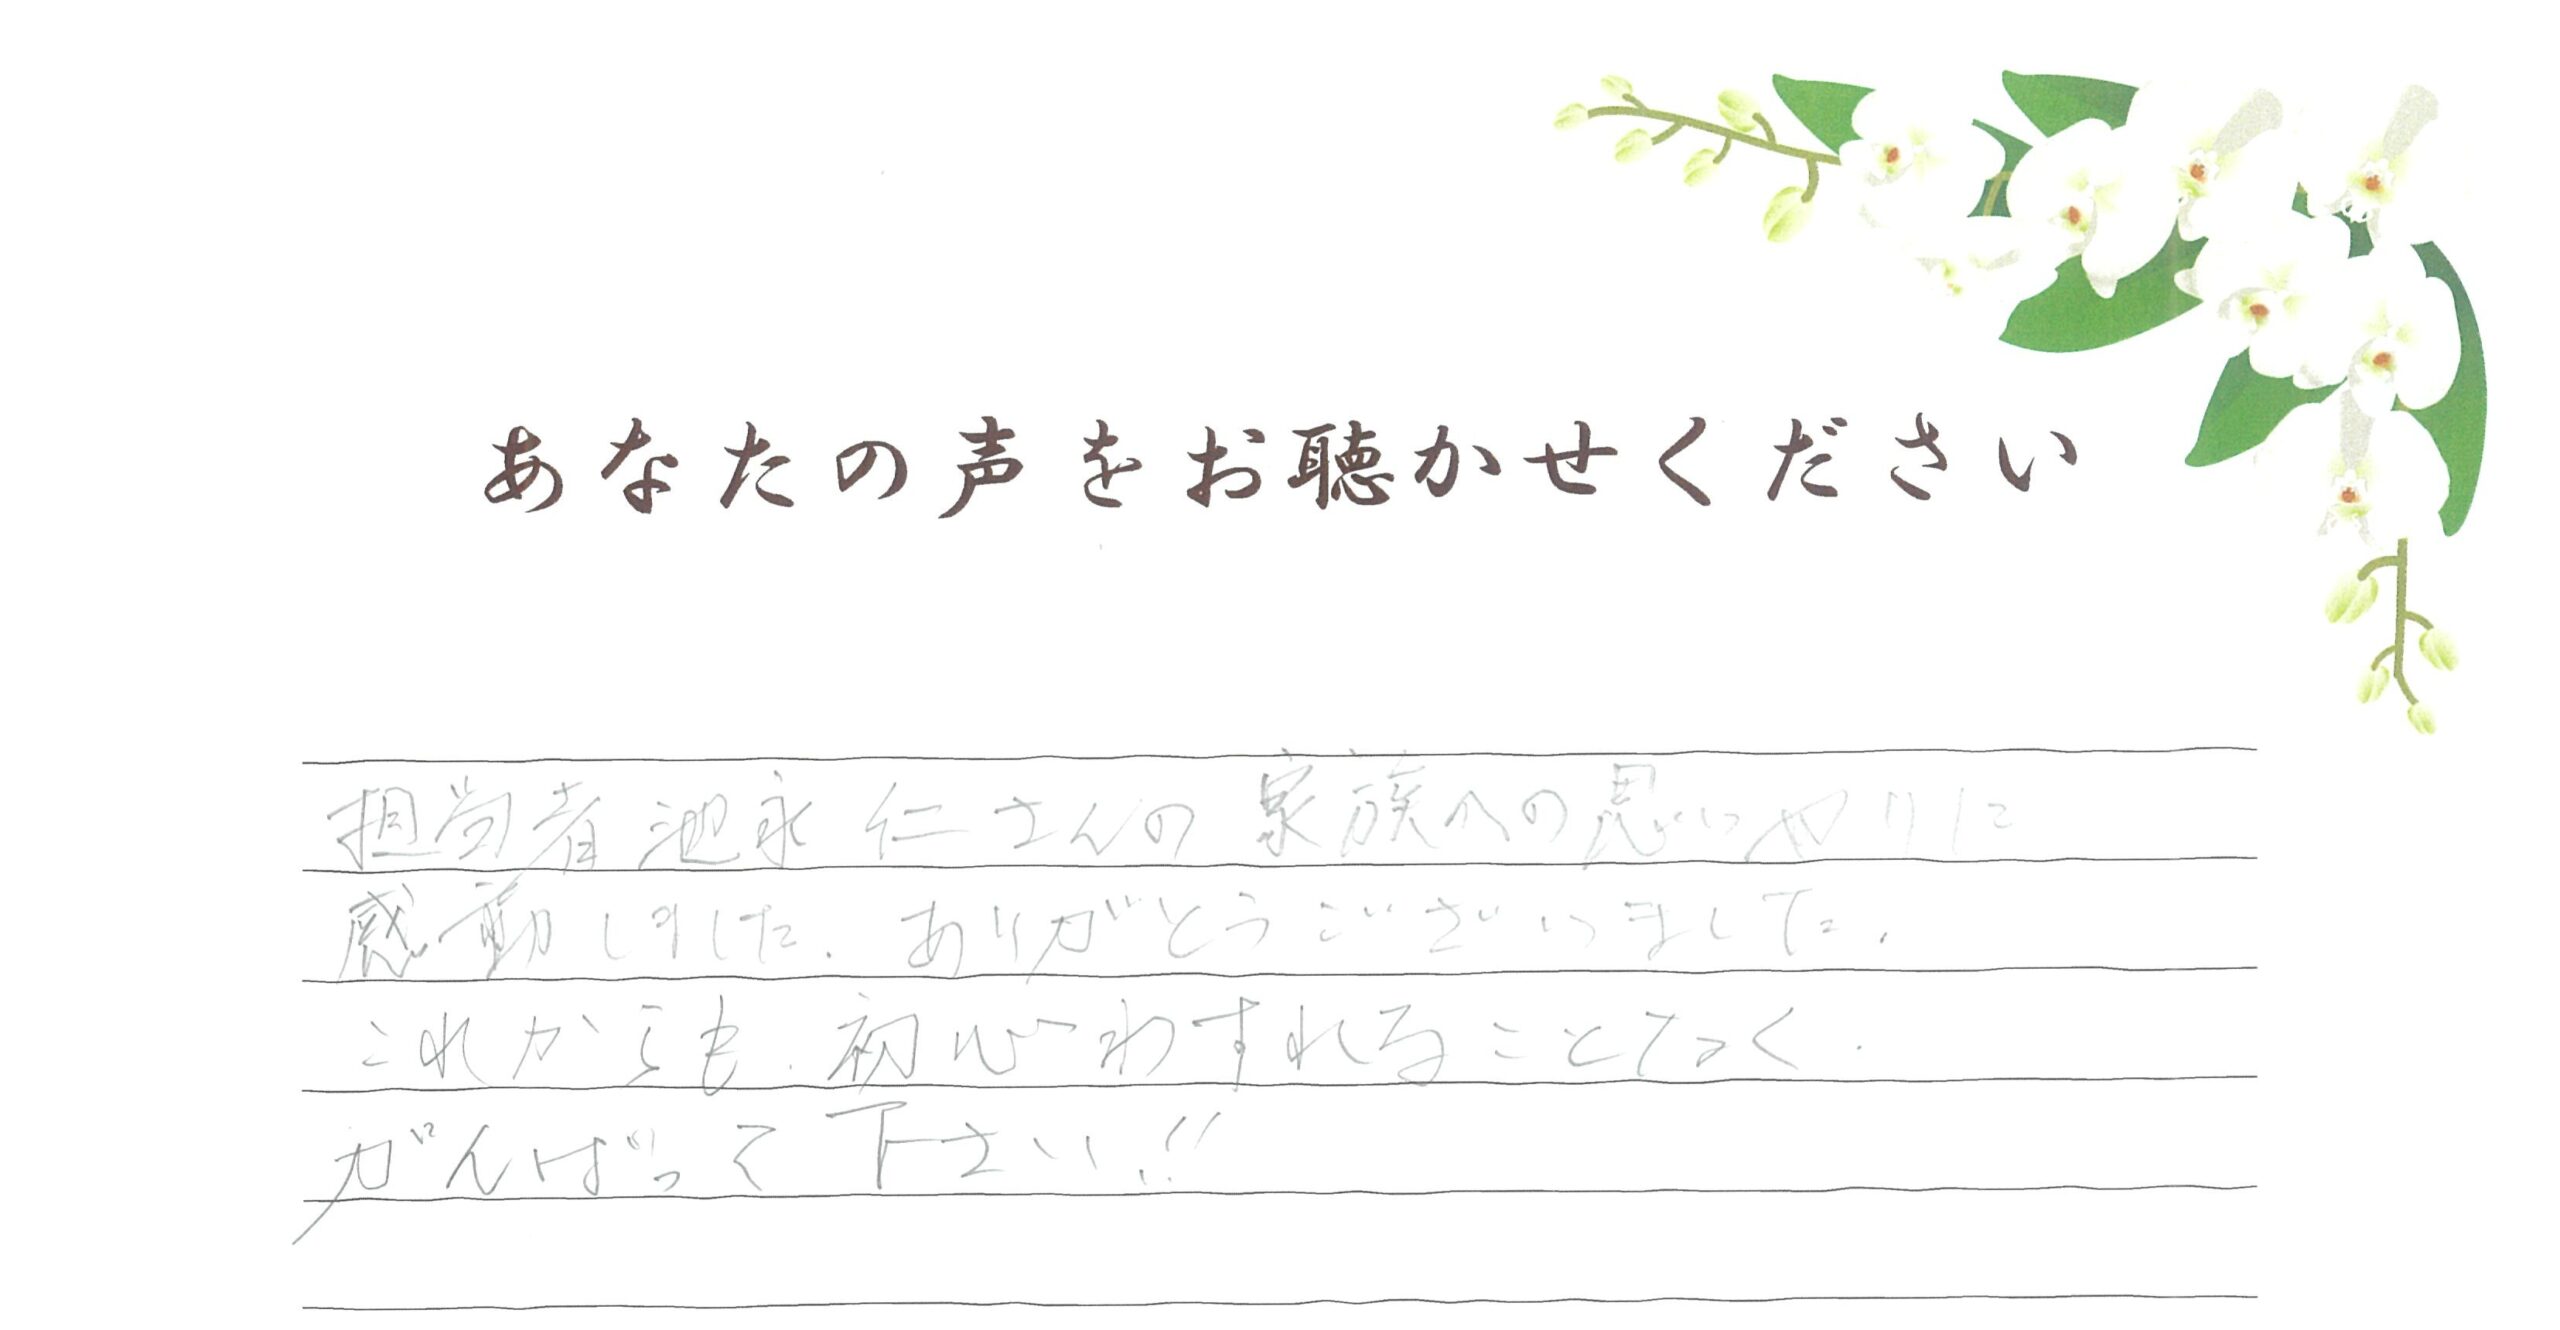 あなたの声をお聴かせください
担当者池永仁さんの家族への思いやりに
感動しました. ありがとうございました.
これからも.初心わすれることなく.
がんばって下さい.!!